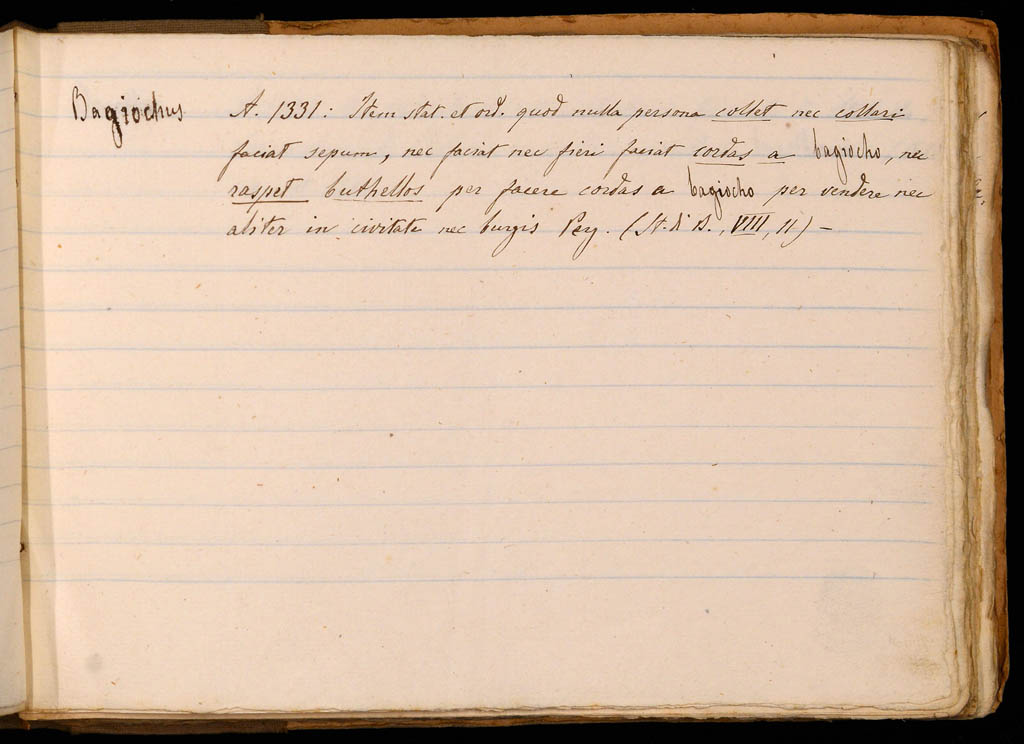 Bagiochus A. 1331: Item stat. et ord. quod nulla persona collet nec collari
faciat sepum, nec faciat nec fieri faciat cordas a bagiocho, nec
raspet buthellos per facere cordas a bagiocho per vendere nec
aliter in civitate nec burgis Pey. (St. di B., VIIII, 11) –